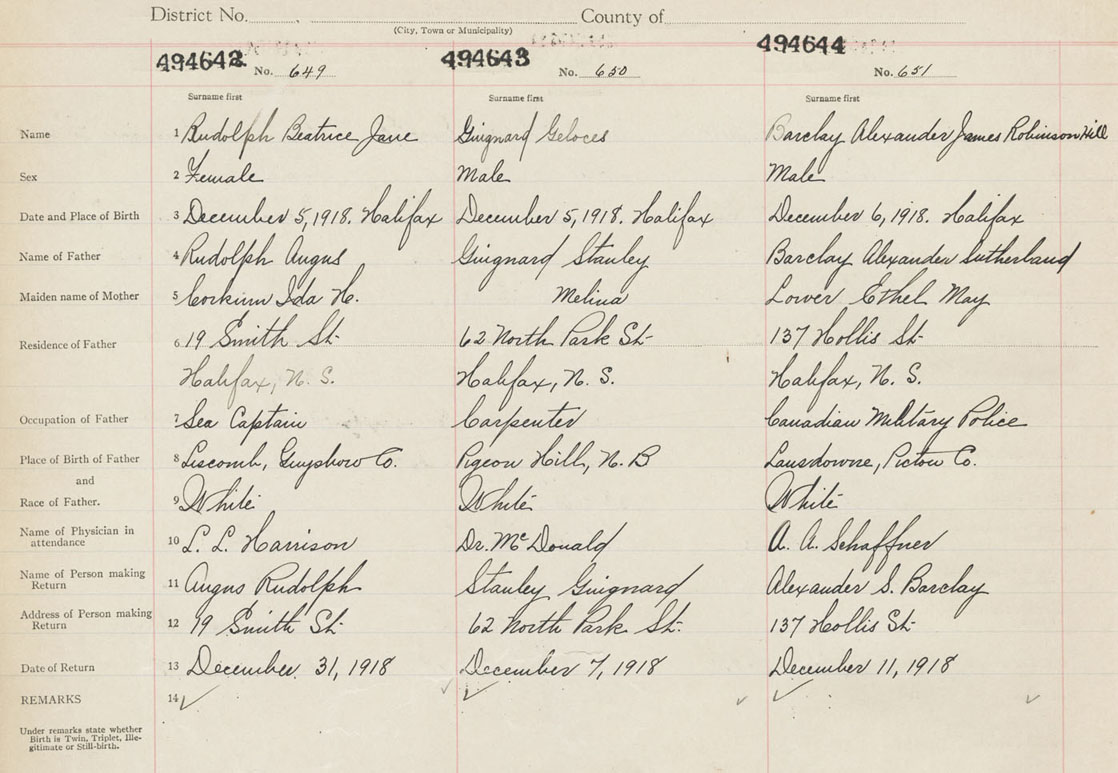 District No. County of
(City, Town or Municipality)
494642 494643 494644
No. 649 No. 650 No. 651
Surname first Surname first Surname first
Name 1 Rudolph Beatrice Jane Guignard Geloces Barclay Alexander James Robinson Hill
Sex 2 Female Male Male
Date and Place of Birth 3 December 5, 1918. Halifax December 5, 1918. Halifax December 6, 1918. Halifax
Name of Father 4 Rudolph Angus Guignard Stanley Barclay Alexander Sutherland
Maiden name of Mother 5 Corkum Ida H. Melina Lower Ethel May
Residence of Father 6 19 Smith St. 62 North Park St. 137 Hollis St.
Halifax, N. S. Halifax, N. S. Halifax, N. S.
Occupation of Father 7 Sea Captain Carpenter Canadian Military Police
Place of Birth of Father 8 Liscomb, Guysboro Co. Pigeon Hill, N. B Lansdowne, Pictou Co.
and
Race of Father. 9 White White White
Name of Physician in
attendance 10 L. L. Harrison Dr. McDonald A. A. Schaffner
Name of Person making
Return 11 Angus Rudolph Stanley Guignard Alexander S. Barclay
Address of Person making
Return 12 19 Smith St. 62 North Park St. 137 Hollis St.
Date of Return 13 December 31, 1918 December 7, 1918 December 11, 1918
REMARKS 14
Under remarks state whether
Birth is Twin, Triplet, Ille-
gitimate or Still-birth.